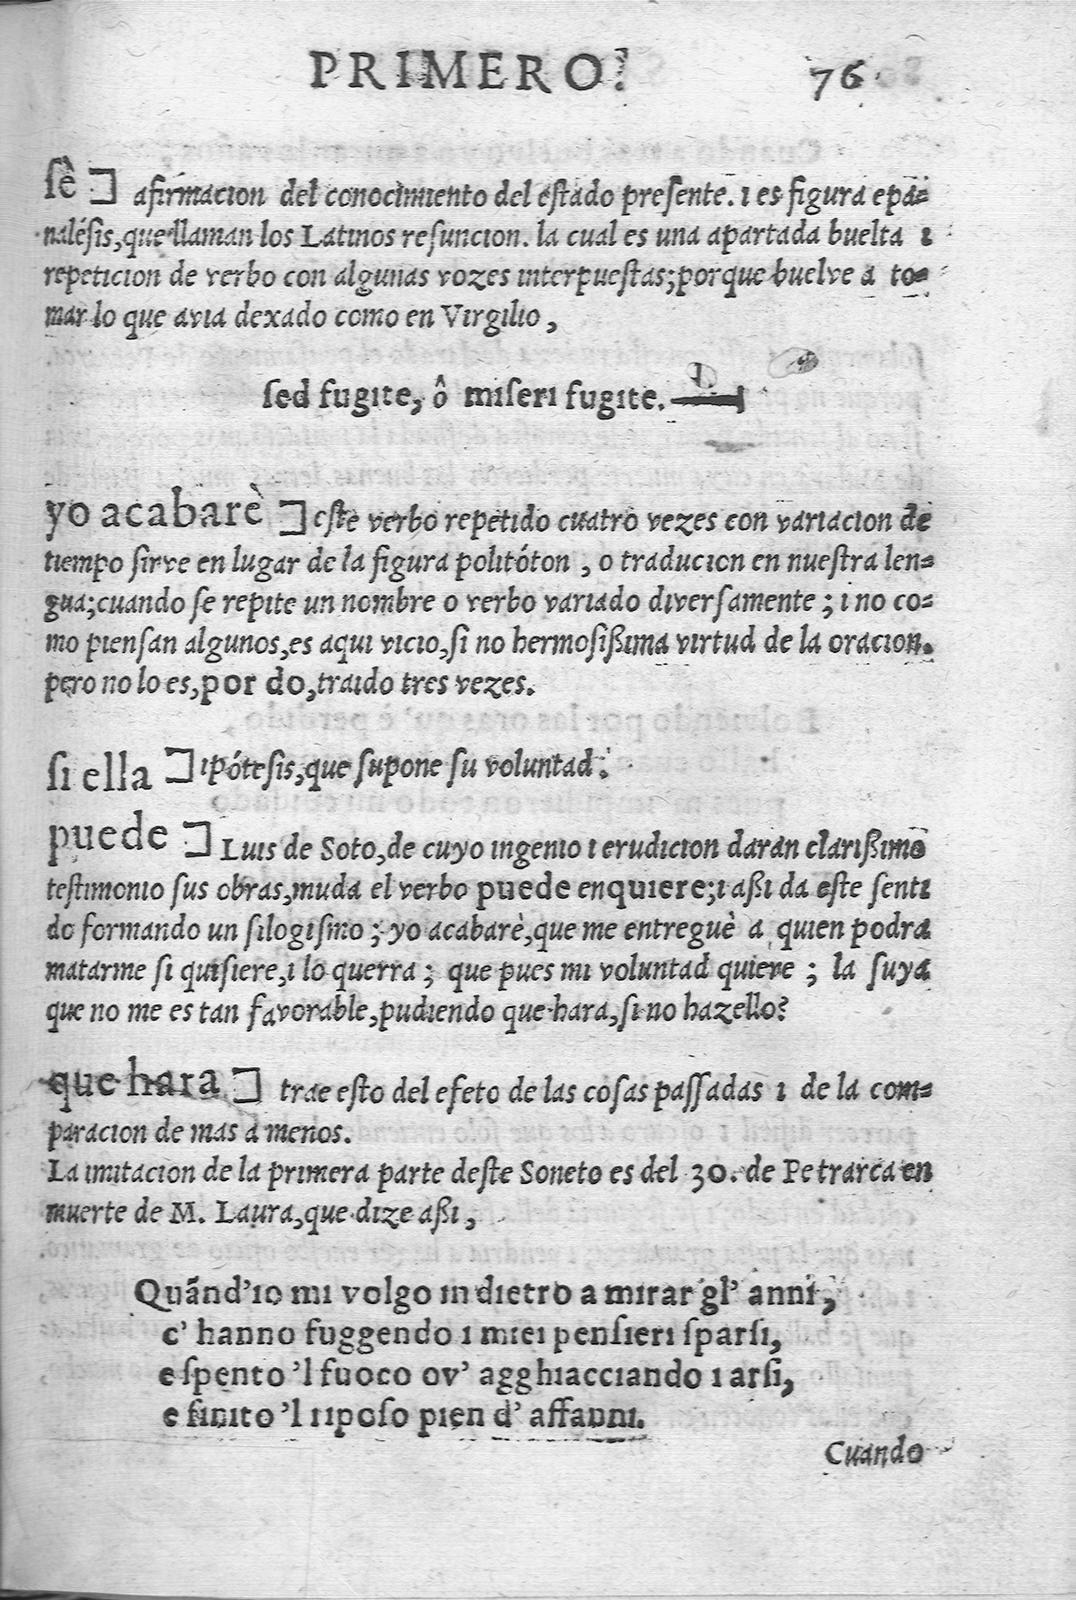 PRIMERO. 76
sè ] afirmacion del conocimiento del estado presente. i es figura epa-
nalésis, que llaman los Latinos resuncion. la cual es una apartada buelta i
repeticion de verbo con algunas vozes interpuestas; porque buelve a to-
mar lo que avia dexado como en Virgilio,
sed fugite, ô miseri fugite.
yo acabarè ] este verbo repetido cuatro vezes con variacion de
tiempo sirve en lugar de la figura politóton, o traducion en nuestra len-
gua; cuando se repite un nombre o verbo variado diversamente; i no co-
mo piensan algunos, es aqui vicio, si no hermosißima virtud de la oracion.
pero no lo es, por do, traido tres vezes.
si ella ] ipótesis, que supone su voluntad.
puede ] Luis de Soto, de cuyo ingenio i erudicion daràn clarißimo
testimonio sus obras, muda el verbo puede en quiere; i aßi da este senti
do formando un silogismo; yo acabarè, que me entreguè a quien podra
matarme si quisiere, i lo querra; que pues mi voluntad quiere; la suya
que no me es tan favorable, pudiendo que hara, si no hazello?
que hara ] trae esto del efeto de las cosas passadas i de la com-
paracion de mas a menos.
La imitacion de la primera parte deste Soneto es del 30. de Petrarca en
muerte de M. Laura, que dize aßi,
Quãnd'io mi volgo indietro a mirar gl' anni,
c' hanno fuggendo i miei pensieri sparsi,
e spento 'l fuoco ov' agghiacciando i arsi,
e finito 'l riposo pien d' affanni.
Cuando